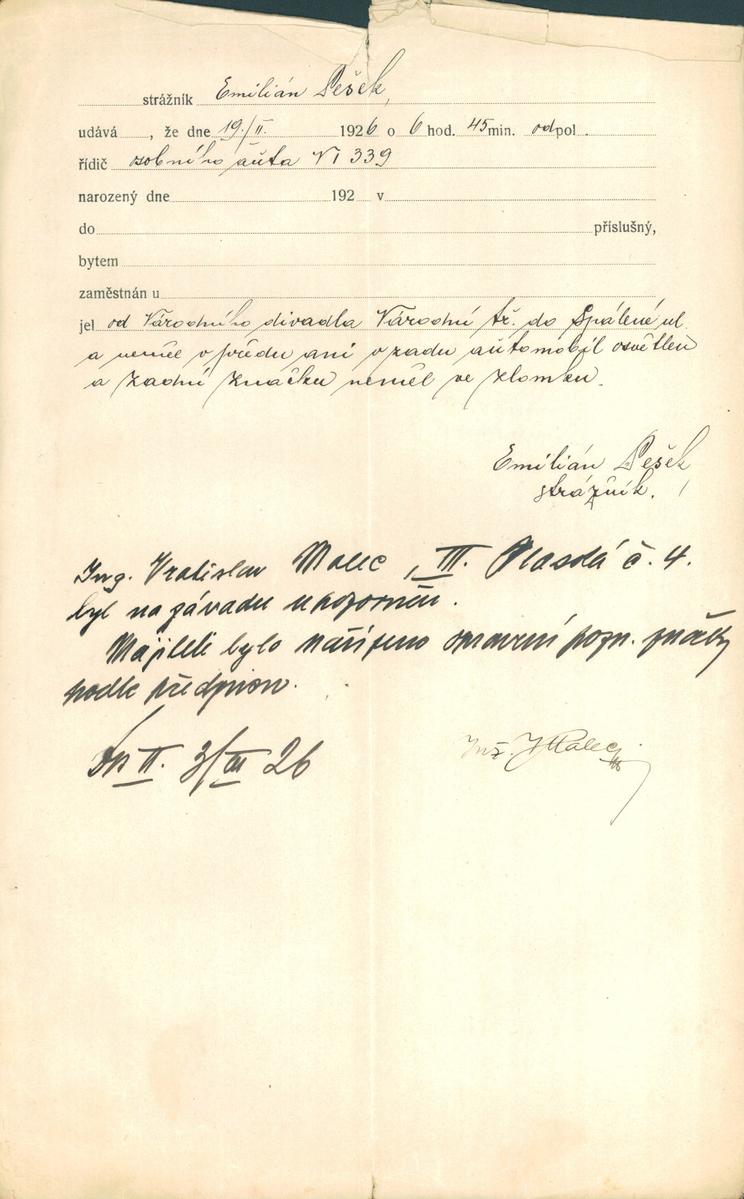 strážník Emilián Pešek,
udává , že dne 19./II. 1926 o 6 hod. 45 min. odpol.
řídič osobního auta VI 339
narozený dne 192 v
do příslušný,
bytem
zaměstnán u
jel od Národního divadla Národní tř. do Spálené ul
a neměl v předu ani v zadu automobil osvětlen
a zadní značku neměl ve zlomku.
Emilián Pešek
strážník.
Ing. Vratislav Malec, III. č. 4.
byl na závadu upozorněn.
Majiteli bylo nařízeno spravení pozn. značky
podle předpisu.
II. 3/III 26
Inž. Malec